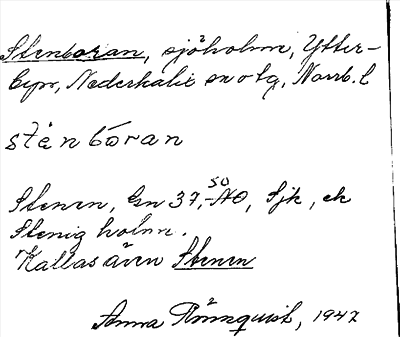 Stenboran, sjöholme, Ytter-
byn, Nederkalix sn o tg, Norrb. l
stènbóran
Stenen, Gn 37, SO -NO, Sjk, ek
Stenig holme.
Kallas även Stenen
Anna Rönnquist, 1947